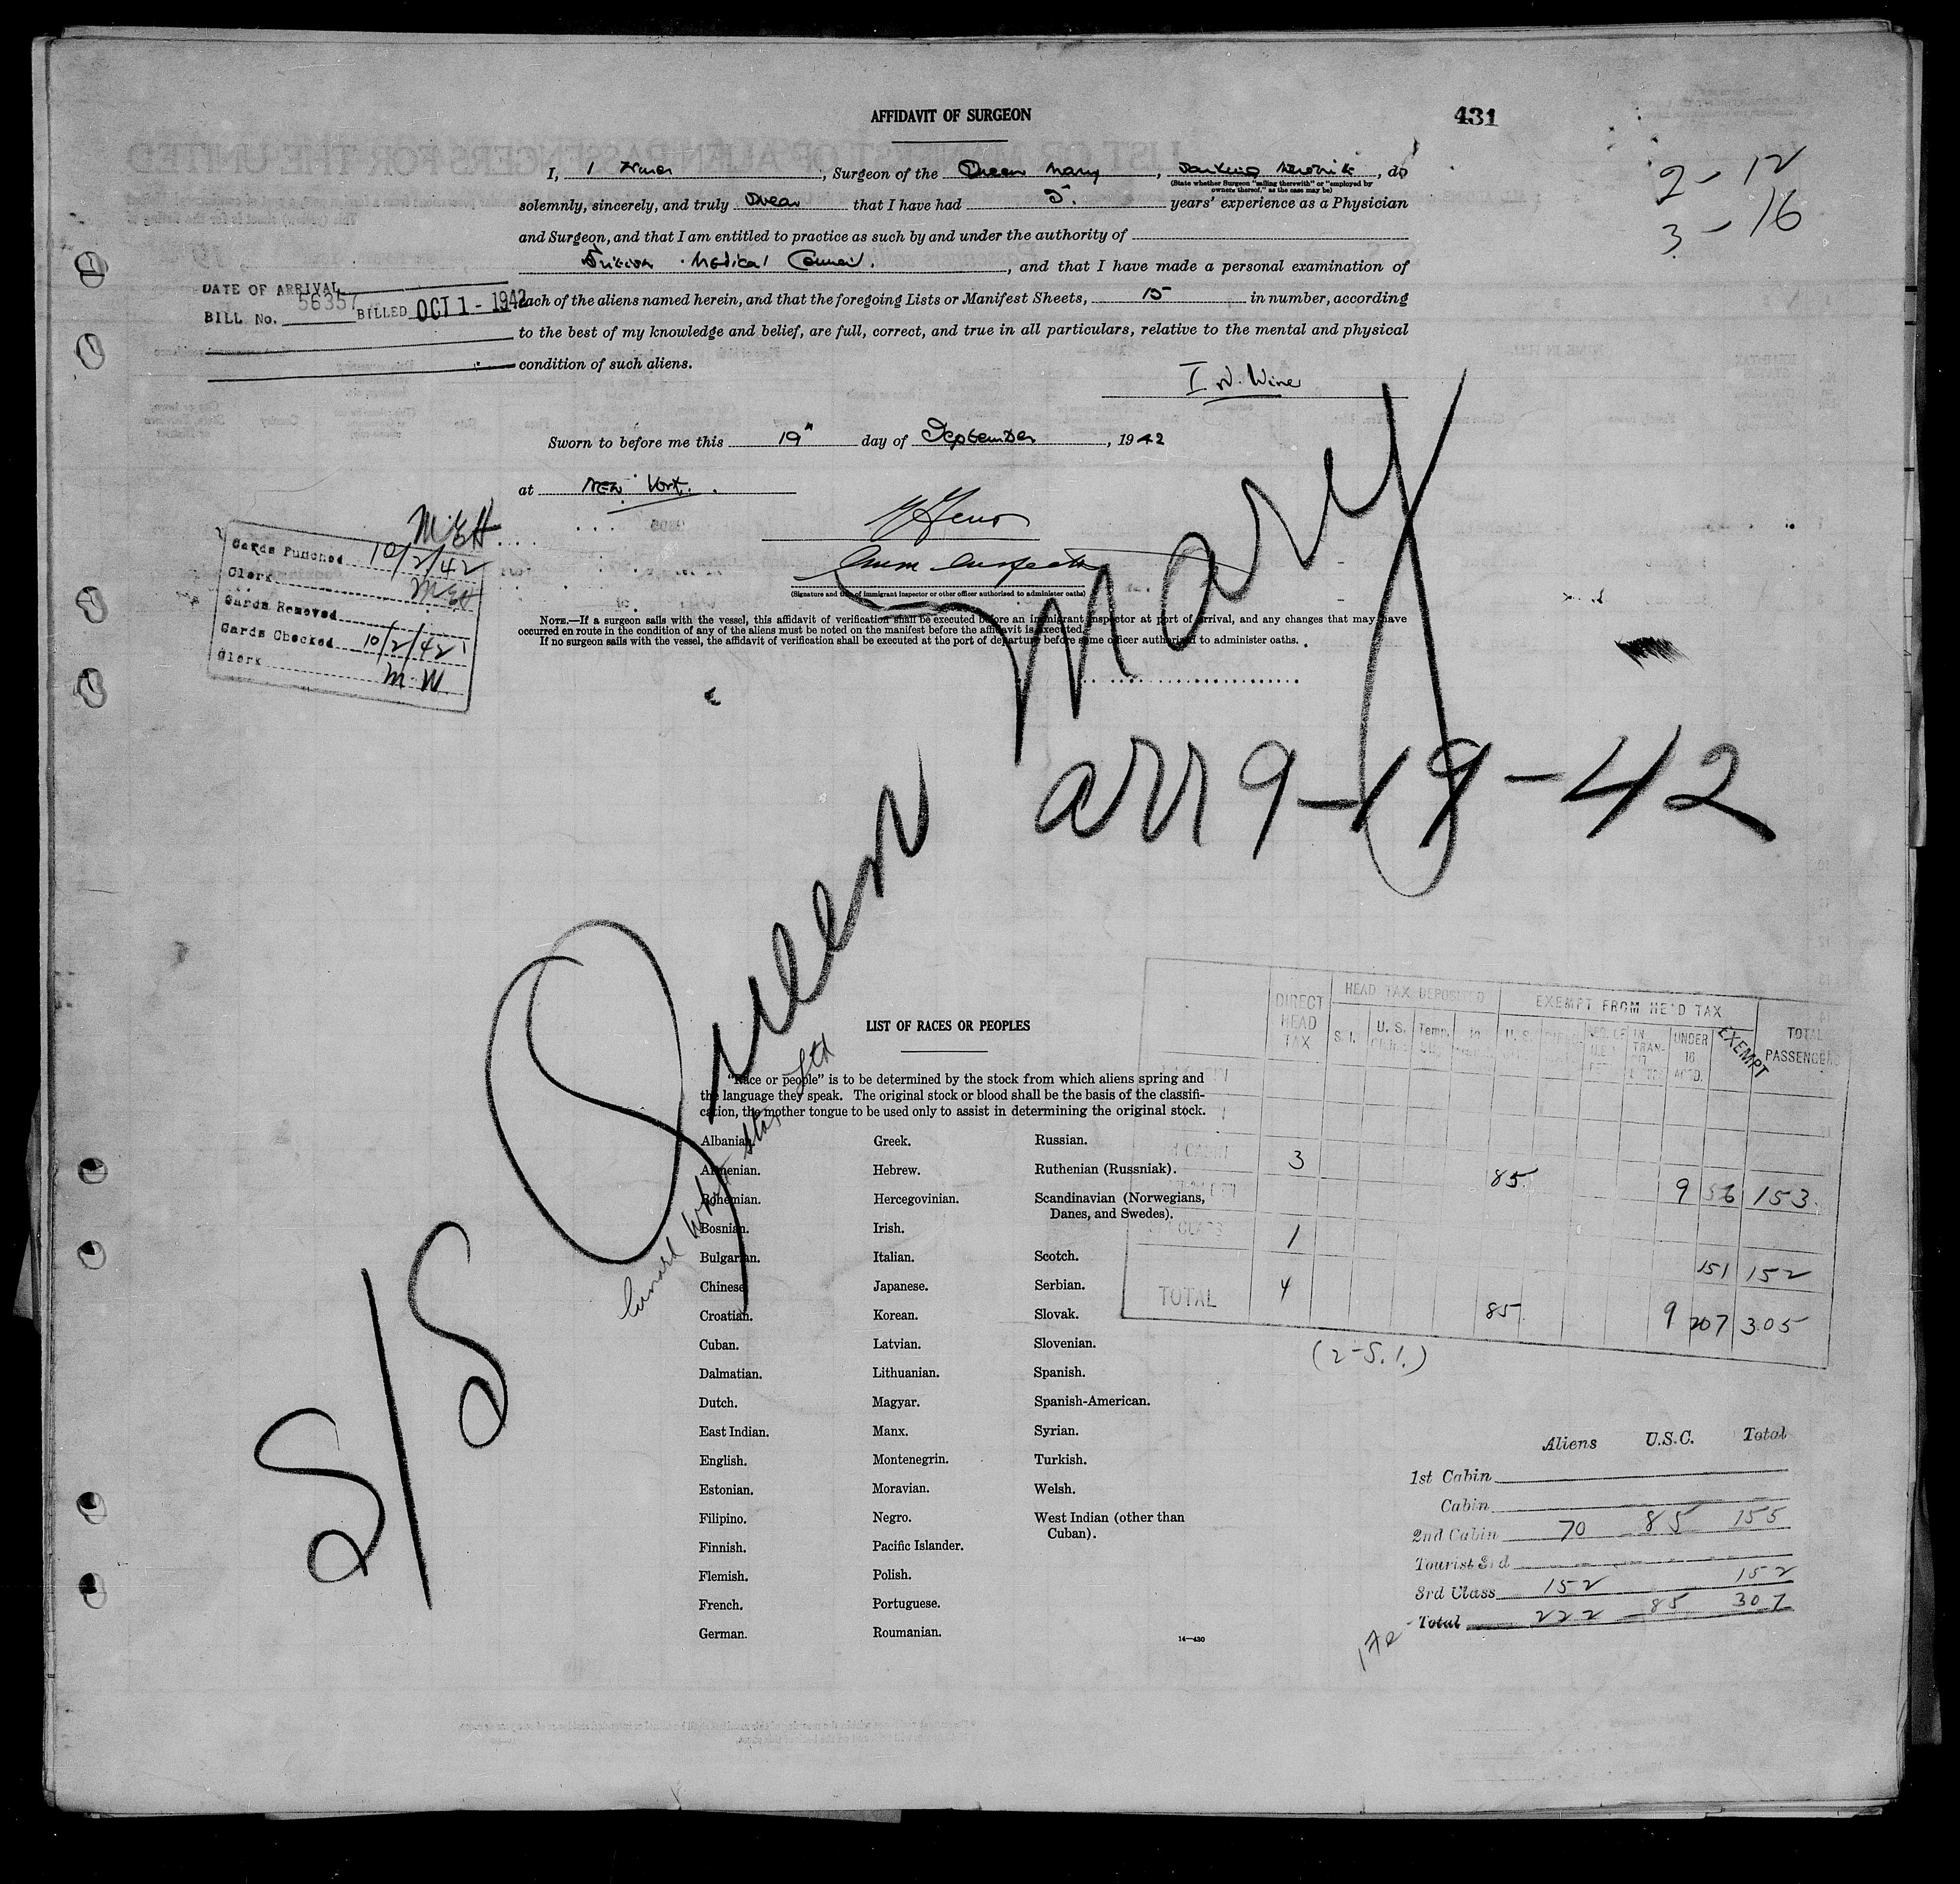 AFFIDAVIT OF SURGEON
431
2 - 12
3 - 16
I, , Surgeon of the Queen Mary, Sailing therewith, do
(State whether Surgeon "sailing therewith" or "employed by
owners thereof," as the case may be)
solemnly, sincerely, and truly Swear that I have had 5. years' experience as a Physician
and Surgeon, and that I am entitled to practice as such by and under the authority of
Medical Council., and that I have made a personal examination of
DATE OF ARRIVAL
BILL No. 56357 BILLED OCT 1 - 1942
each of the aliens named herein, and that the foregoing Lists or Manifest Sheets, 15 in number, according
to the best of my knowledge and belief, are full, correct, and true in all particulars, relative to the mental and physical
condition of such aliens.
Sworn to before me this 19" day of September, 1942
at New York.
(Signature and title of immigrant inspector or other officer authorized to administer oaths)
M.E.H.
Cards Punched 10/2/42
Clerk MEH
Cards Removed
Cards Checked 10/2/42
Clerk M.W.
NOTE.—If a surgeon sails with the vessel, this affidavit of verification shall be executed before an immigrant inspector at port of arrival, and any changes that may have
occurred en route in the condition of any of the aliens must be noted on the manifest before the affidavit is executed.
If no surgeon sails with the vessel, the affidavit of verification shall be executed at the port of departure before some officer authorized to administer oaths.
S/S Queen Mary
arr 9-19-42
Cunard White Star Ltd
LIST OF RACES OR PEOPLES
"Race or people" is to be determined by the stock from which aliens spring and
the language they speak. The original stock or blood shall be the basis of the classifi-
cation, the mother tongue to be used only to assist in determining the original stock.
Albanian.
Armenian.
Bohemian.
Bosnian.
Bulgarian.
Chinese.
Croatian.
Cuban.
Dalmatian.
Dutch.
East Indian.
English.
Estonian.
Filipino.
Finnish.
Flemish.
French.
German.
Greek.
Hebrew.
Hercegovinian.
Irish.
Italian.
Japanese.
Korean.
Latvian.
Lithuanian.
Magyar.
Manx.
Montenegrin.
Moravian.
Negro.
Pacific Islander.
Polish.
Portuguese.
Roumanian.
Russian.
Ruthenian (Russniak).
Scandinavian (Norwegians,
Danes, and Swedes).
Scotch.
Serbian.
Slovak.
Slovenian.
Spanish.
Spanish-American.
Syrian.
Turkish.
Welsh.
West Indian (other than
Cuban).
14—430
DIRECT HEAD TAX
HEAD TAX DEPOSITED
EXEMPT FROM HEAD TAX
TOTAL PASSENGERS
S. I. U. S. Temp. U. S. IN TRAN- UNDER 16 ACCD. EXEMPT
3 85 9 56 153
CLASS 1 151 152
TOTAL 4 85 9 207 305
(2-S.I.)
Aliens U.S.C. Total
1st Cabin
Cabin
2nd Cabin 70 85 155
Tourist 3rd
3rd Class 152 152
Total 222 85 307